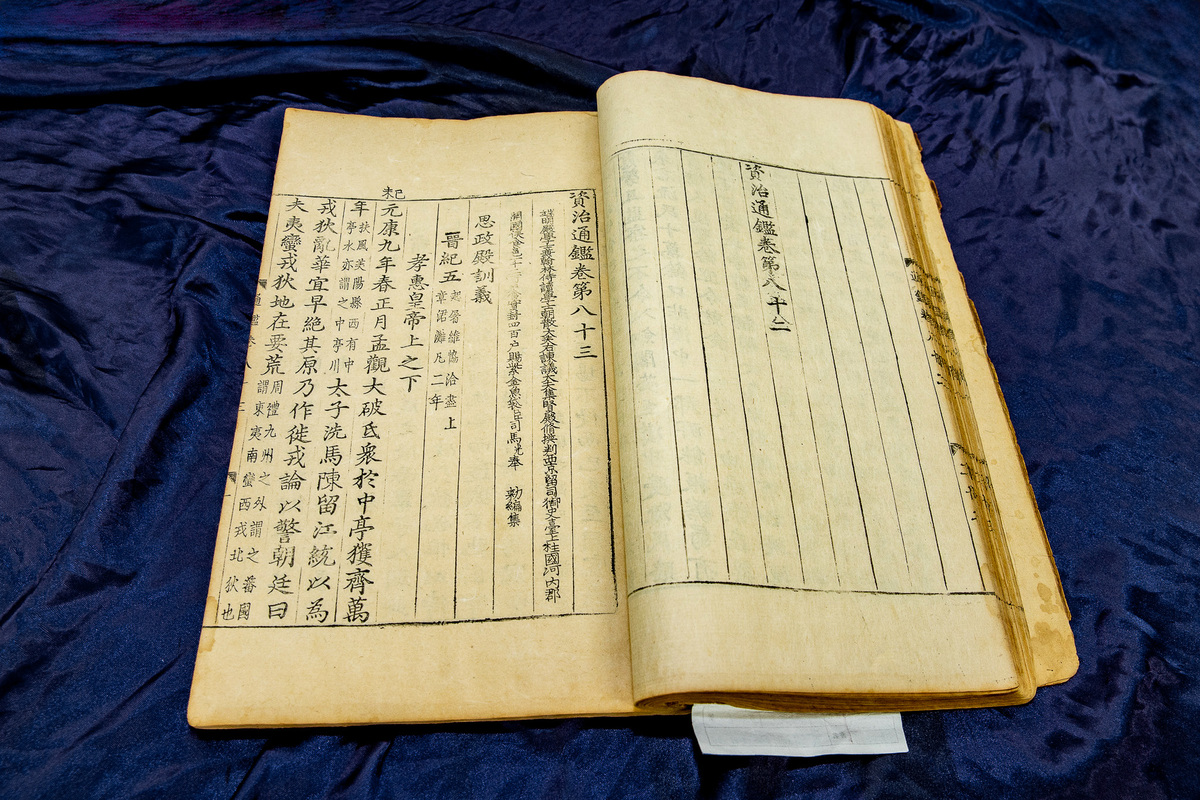 資治通鑑卷第八十二
資治通鑑卷第八十三
端明殿學士兼翰林侍讀學士朝散大夫右諫議大夫集賢殿修撰判西京留司御史臺上柱國河內郡
封四百戶賜紫金魚袋臣司馬光奉 勑編集
思政殿訓義
晉紀五 起屠維協洽盡上章涒灘凡二年
孝惠皇帝上之下
己未
元康九年春正月孟觀大破氐衆於中亭獲齊萬
年扶風美陽縣西有中亭水亦謂之中亭川太子洗馬陳留江統以為
戎狄亂華宜早絕其原乃作徙戎論以警朝廷曰
夫夷蠻戎狄地在要荒周禮九州之外謂之蕃國謂東夷南蠻西戎北狄也